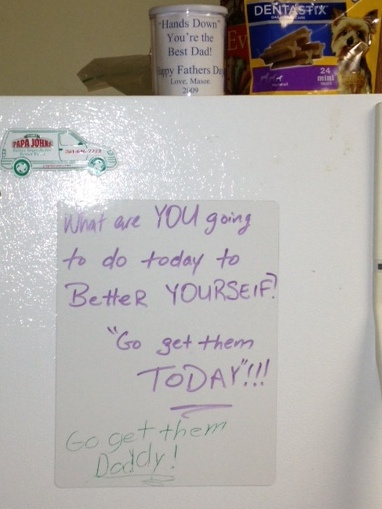 "Hands Down"
You're the
Best Dad!
Happy Fathers Day
Love, Mason
2009
DENTASTIX
24
mini
PAPA JOHNS
What are YOU going
to do today to
BetteR YOURSElF?
"Go get them
TODAY"!!!
Go get them
Daddy!